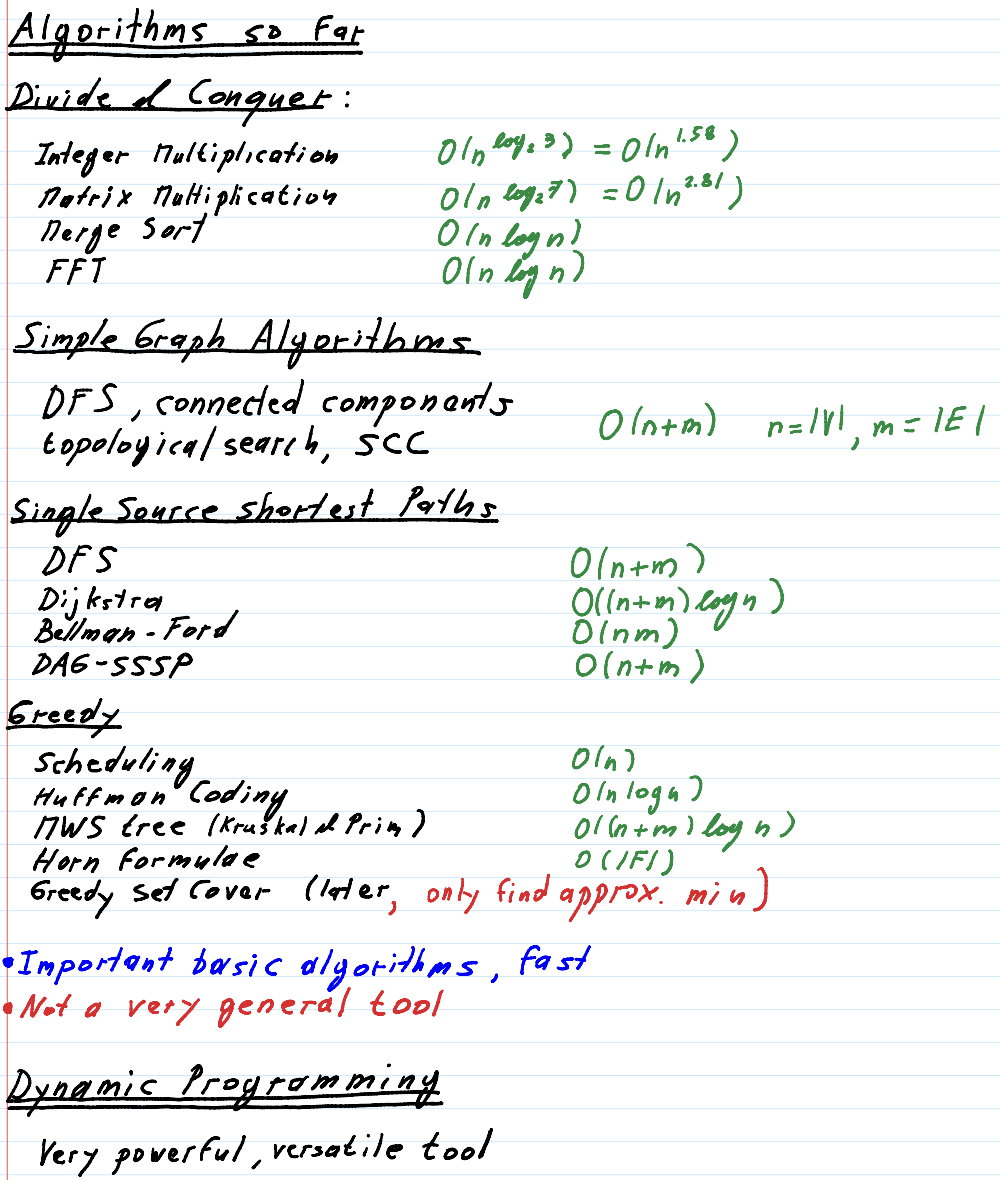 Algorithms so Far
Divide & Conquer:
Integer Multiplication O(n^{log_2 3}) = O(n^{1.58})
Matrix Multiplication O(n^{log_2 7}) = O(n^{2.81})
Merge Sort O(n log n)
FFT O(n log n)
Simple Graph Algorithms
DFS, connected components
topological search, SCC O(n+m) n=|V|, m=|E|
Single Source shortest Paths
DFS O(n+m)
Dijkstra O((n+m) log n)
Bellman-Ford O(nm)
DAG-SSSP O(n+m)
Greedy
Scheduling O(n)
Huffman Coding O(n log n)
MWS tree (Kruskal & Prim) O((n+m) log n)
Horn Formulae O(|F|)
Greedy Set Cover (later, only find approx. min)
• Important basic algorithms, fast
• Not a very general tool
Dynamic Programming
Very powerful, versatile tool